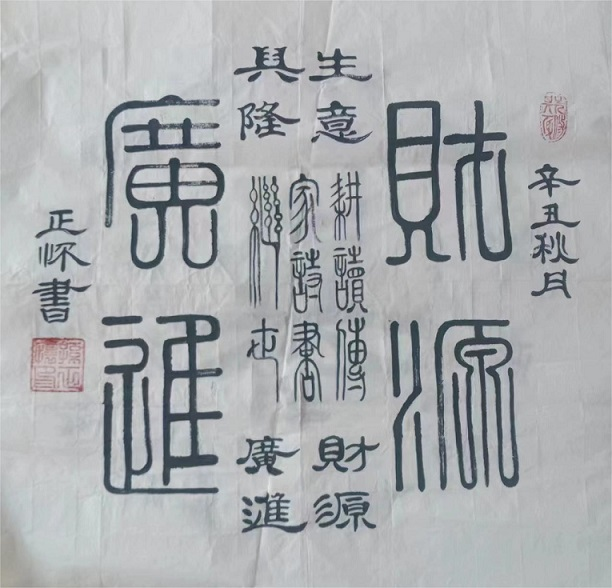 辛丑秋月
財源
廣進
生意
興隆
耕讀傳
家詩書
繼世
財源
廣進
正怀書